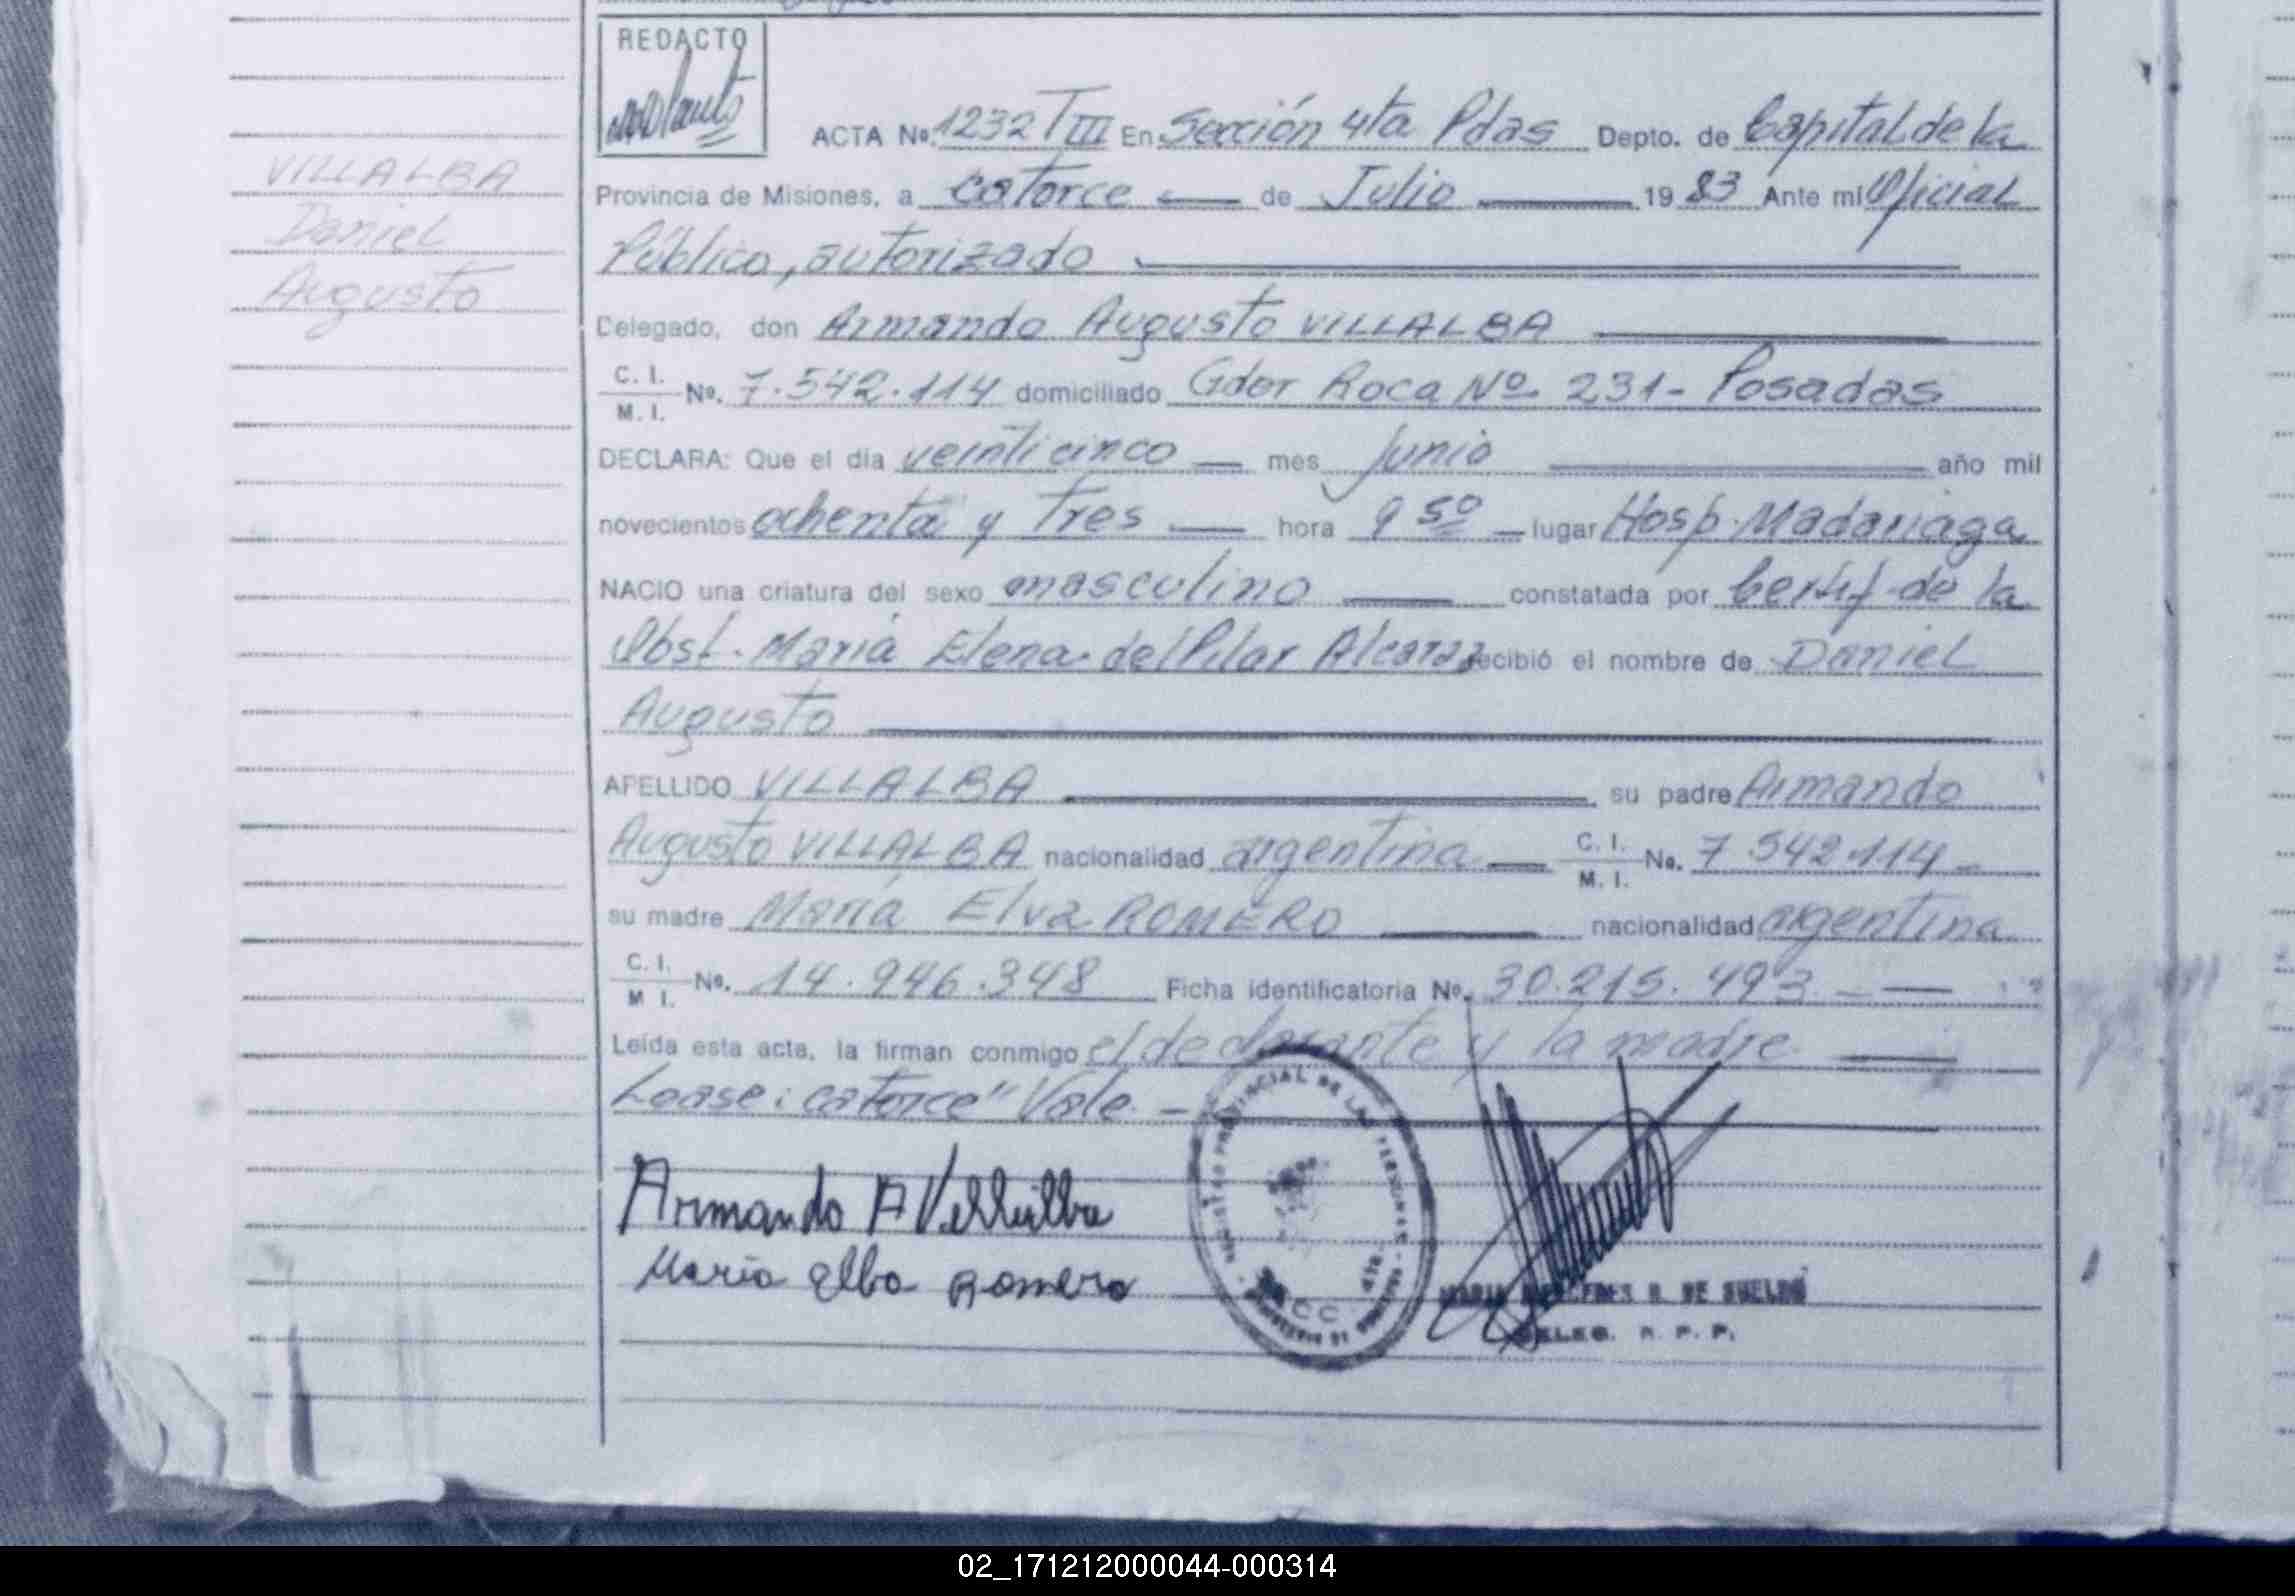 REDACTO
ACTA Nº. 1232 T III En Sección 4ta Pdas Depto. de Capital de la
VILLALBA
Daniel
Augusto
Provincia de Misiones, a catorce de Julio 19 83 Ante mí Oficial
Público, autorizado
Delegado, don Armando Augusto VILLALBA
C. I.
M. I. Nº. 7.542.114 domiciliado Gdor Roca Nº 231- Posadas
DECLARA: Que el día veinticinco mes Junio año mil
novecientos ochenta y tres hora 9 50 lugar Hosp. Madariaga
NACIO una criatura del sexo masculino constatada por Certif de la
Obst. María Elena del Pilar Alcaraz recibió el nombre de Daniel
Augusto
APELLIDO VILLALBA su padre Armando
Augusto VILLALBA nacionalidad argentina C. I.
M. I. Nº. 7 542.114 -
su madre María Elva ROMERO nacionalidad argentina
C. I.
M I. Nº. 14.946.348 Ficha identificatoria Nº. 30.215.493 -
Leída esta acta, la firman conmigo el declarante y la madre
Lease: catorce" Vale. -
Armando A Villalba
María elba Romero
PROVINCIAL DE LAS PERSONAS
MARIA MERCEDES R. DE SUELDO
DELEG. R. P. P.
02_171212000044-000314